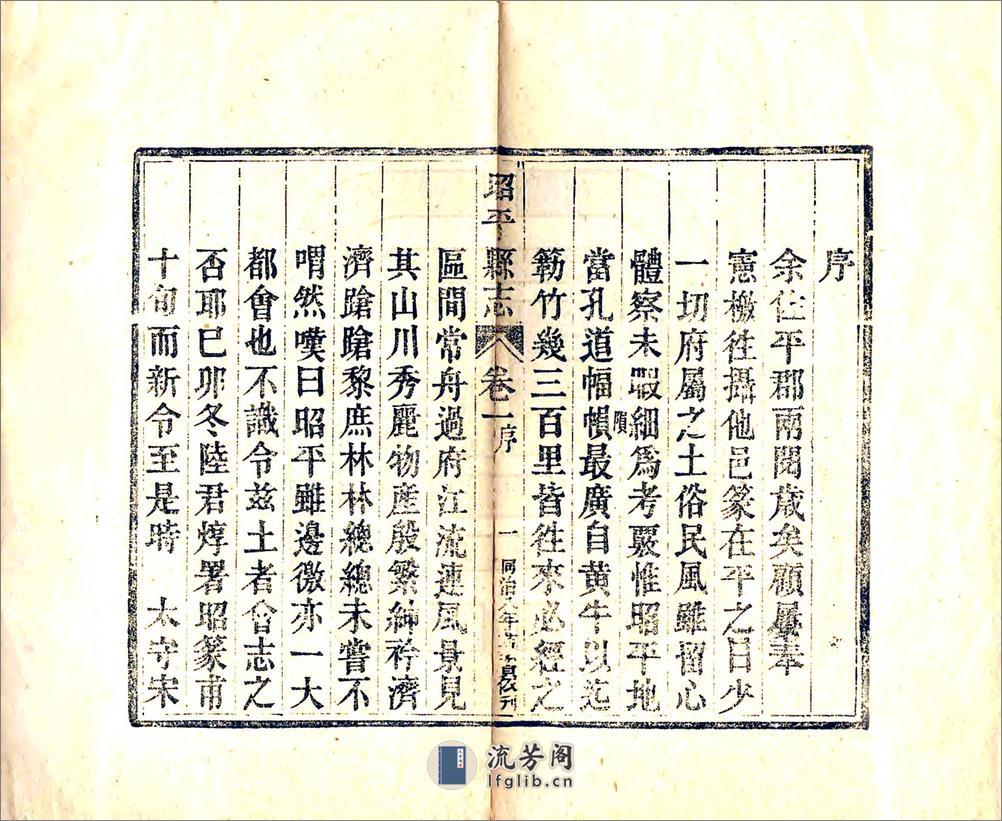 序
余任平郡兩閱歲矣顧屢奉
憲檄徃攝他邑篆在平之日少
一切府屬之土俗民風雖留心
體察未暇細爲考覈惟昭平地
當孔道幅幀最廣自黄牛以迄
隕
簕竹幾三百里皆徃來必經之
昭平縣志 卷一 序 一 同治
區間常舟過府江流連風景見
其山川秀麗物産殷繁紳衿濟
濟蹌蹌黎庶林林總總未嘗不
喟然嘆曰昭平雖邊徼亦一大
都會也不識令兹土者會志之
否耶已卯冬陸君焞署昭篆甫
十旬而新令至是時 太守宋
流芳阁
lfglib.cn